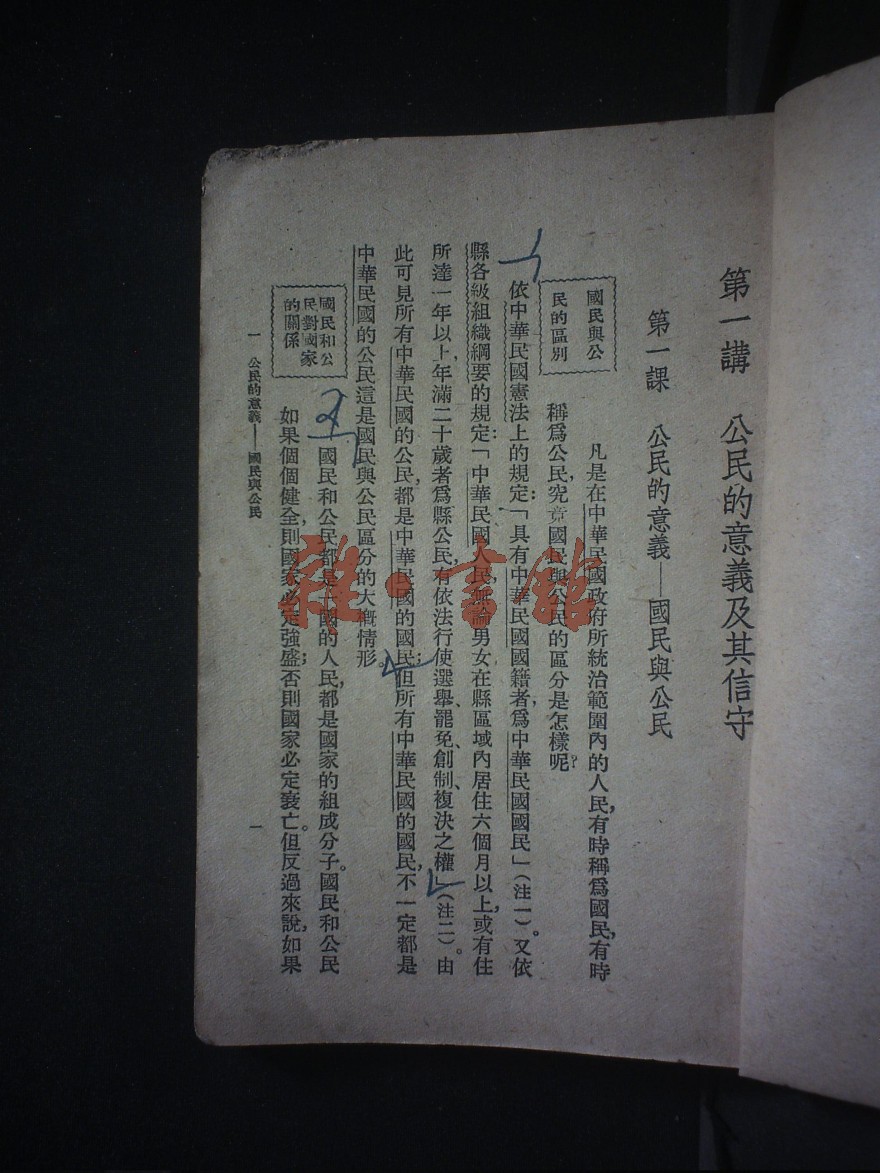 第一講　公民的意義及其信守
第一課　公民的意義——國民與公民
國民與公
民的區別
凡是在中華民國政府所統治範圍內的人民,有時稱爲國民,有時
稱爲公民,究竟國民與公民的區分是怎樣呢?
依中華民國憲法上的規定:「具有中華民國國籍者爲中華民國國民」(注一)。又依
縣各級組織綱要的規定:「中華民國人民,無論男女在縣區域內居住六個月以上,或有住
所達一年以上,年滿二十歲者爲縣公民,有依法行使選舉、罷免、創制、複決之權」(注二)。由
此可見所有中華民國的公民,都是中華民國的國民;但所有中華民國的國民,不一定都是
中華民國的公民這是國民與公民區分的大概情形。
國民和公
民對國家
的關係
國民和公民都是一國的人民,都是國家的組成分子。國民和公民
如果個個健全,則國家必定強盛;否則國家必定衰亡。但反過來說,如果
一　公民的意義——國民與公民
一
雜·書館